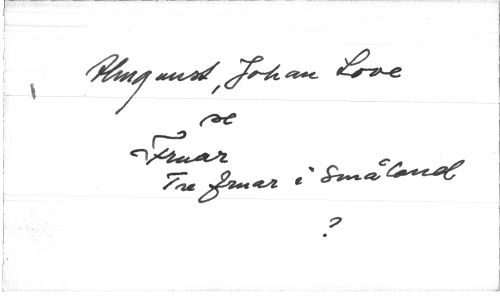 Almquist, Johan Love
se
Fruar
Tre fruar i Småland
?